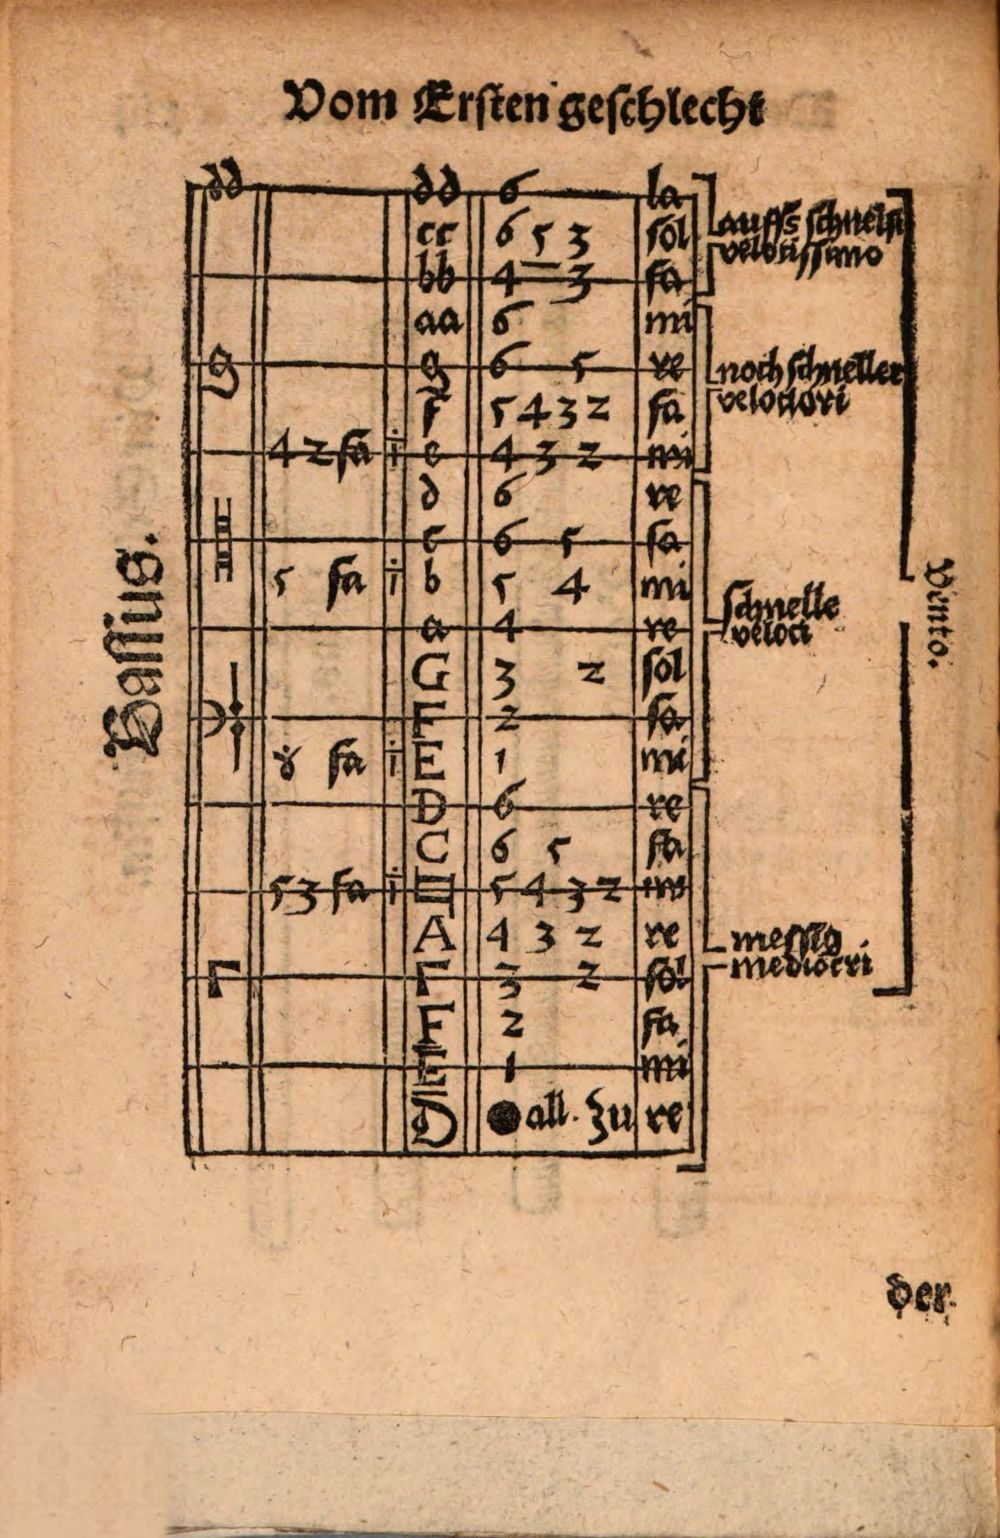 Vom Ersten geschlecht
dd dd 6 la
cc 6 5 3 sol
bb 4 3 fa
aa 6 mi
g g 6 5 re
f 5 4 3 2 fa
4 2 fa i e 4 3 2 mi
d 6 re
c 6 5 fa
5 fa i b 5 4 mi
a 4 re
G 3 2 sol
F 2 fa
fa i E 1 mi
D 6 re
C 6 5 fa
5 3 fa i 5 4 3 2 mi
A 4 3 2 re
Γ Γ 3 2 sol
F 2 fa
E 1 mi
D ● all. zu re
auffs schnelst
velocissimo
noch schneller
velociori
schnelle
veloci
messig
mediocri
Bassus.
Vento.
der